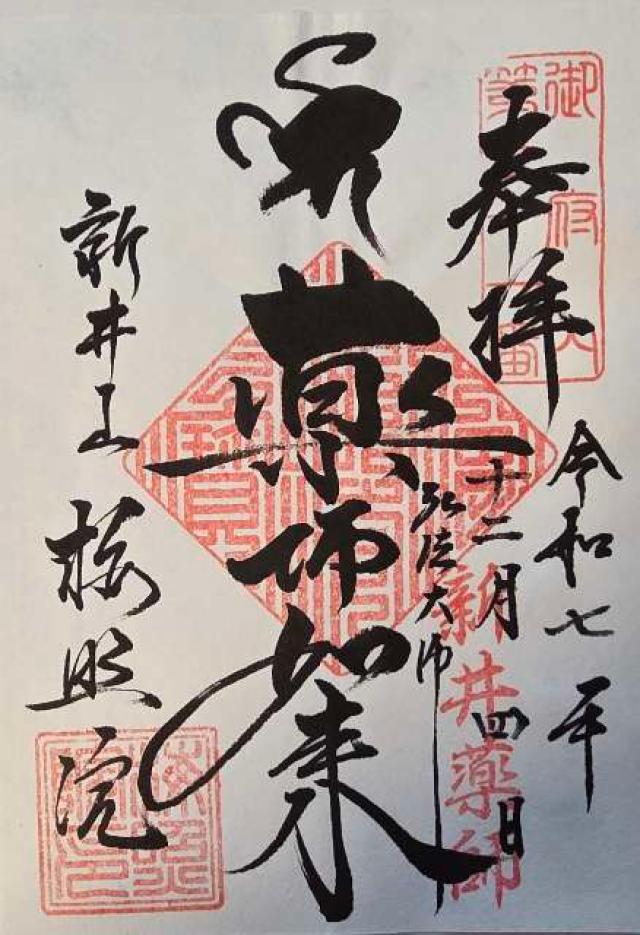 奉拝
令和七年
十二月四日
新井薬師
弘法大師
薬師如来
新井山
梅照院